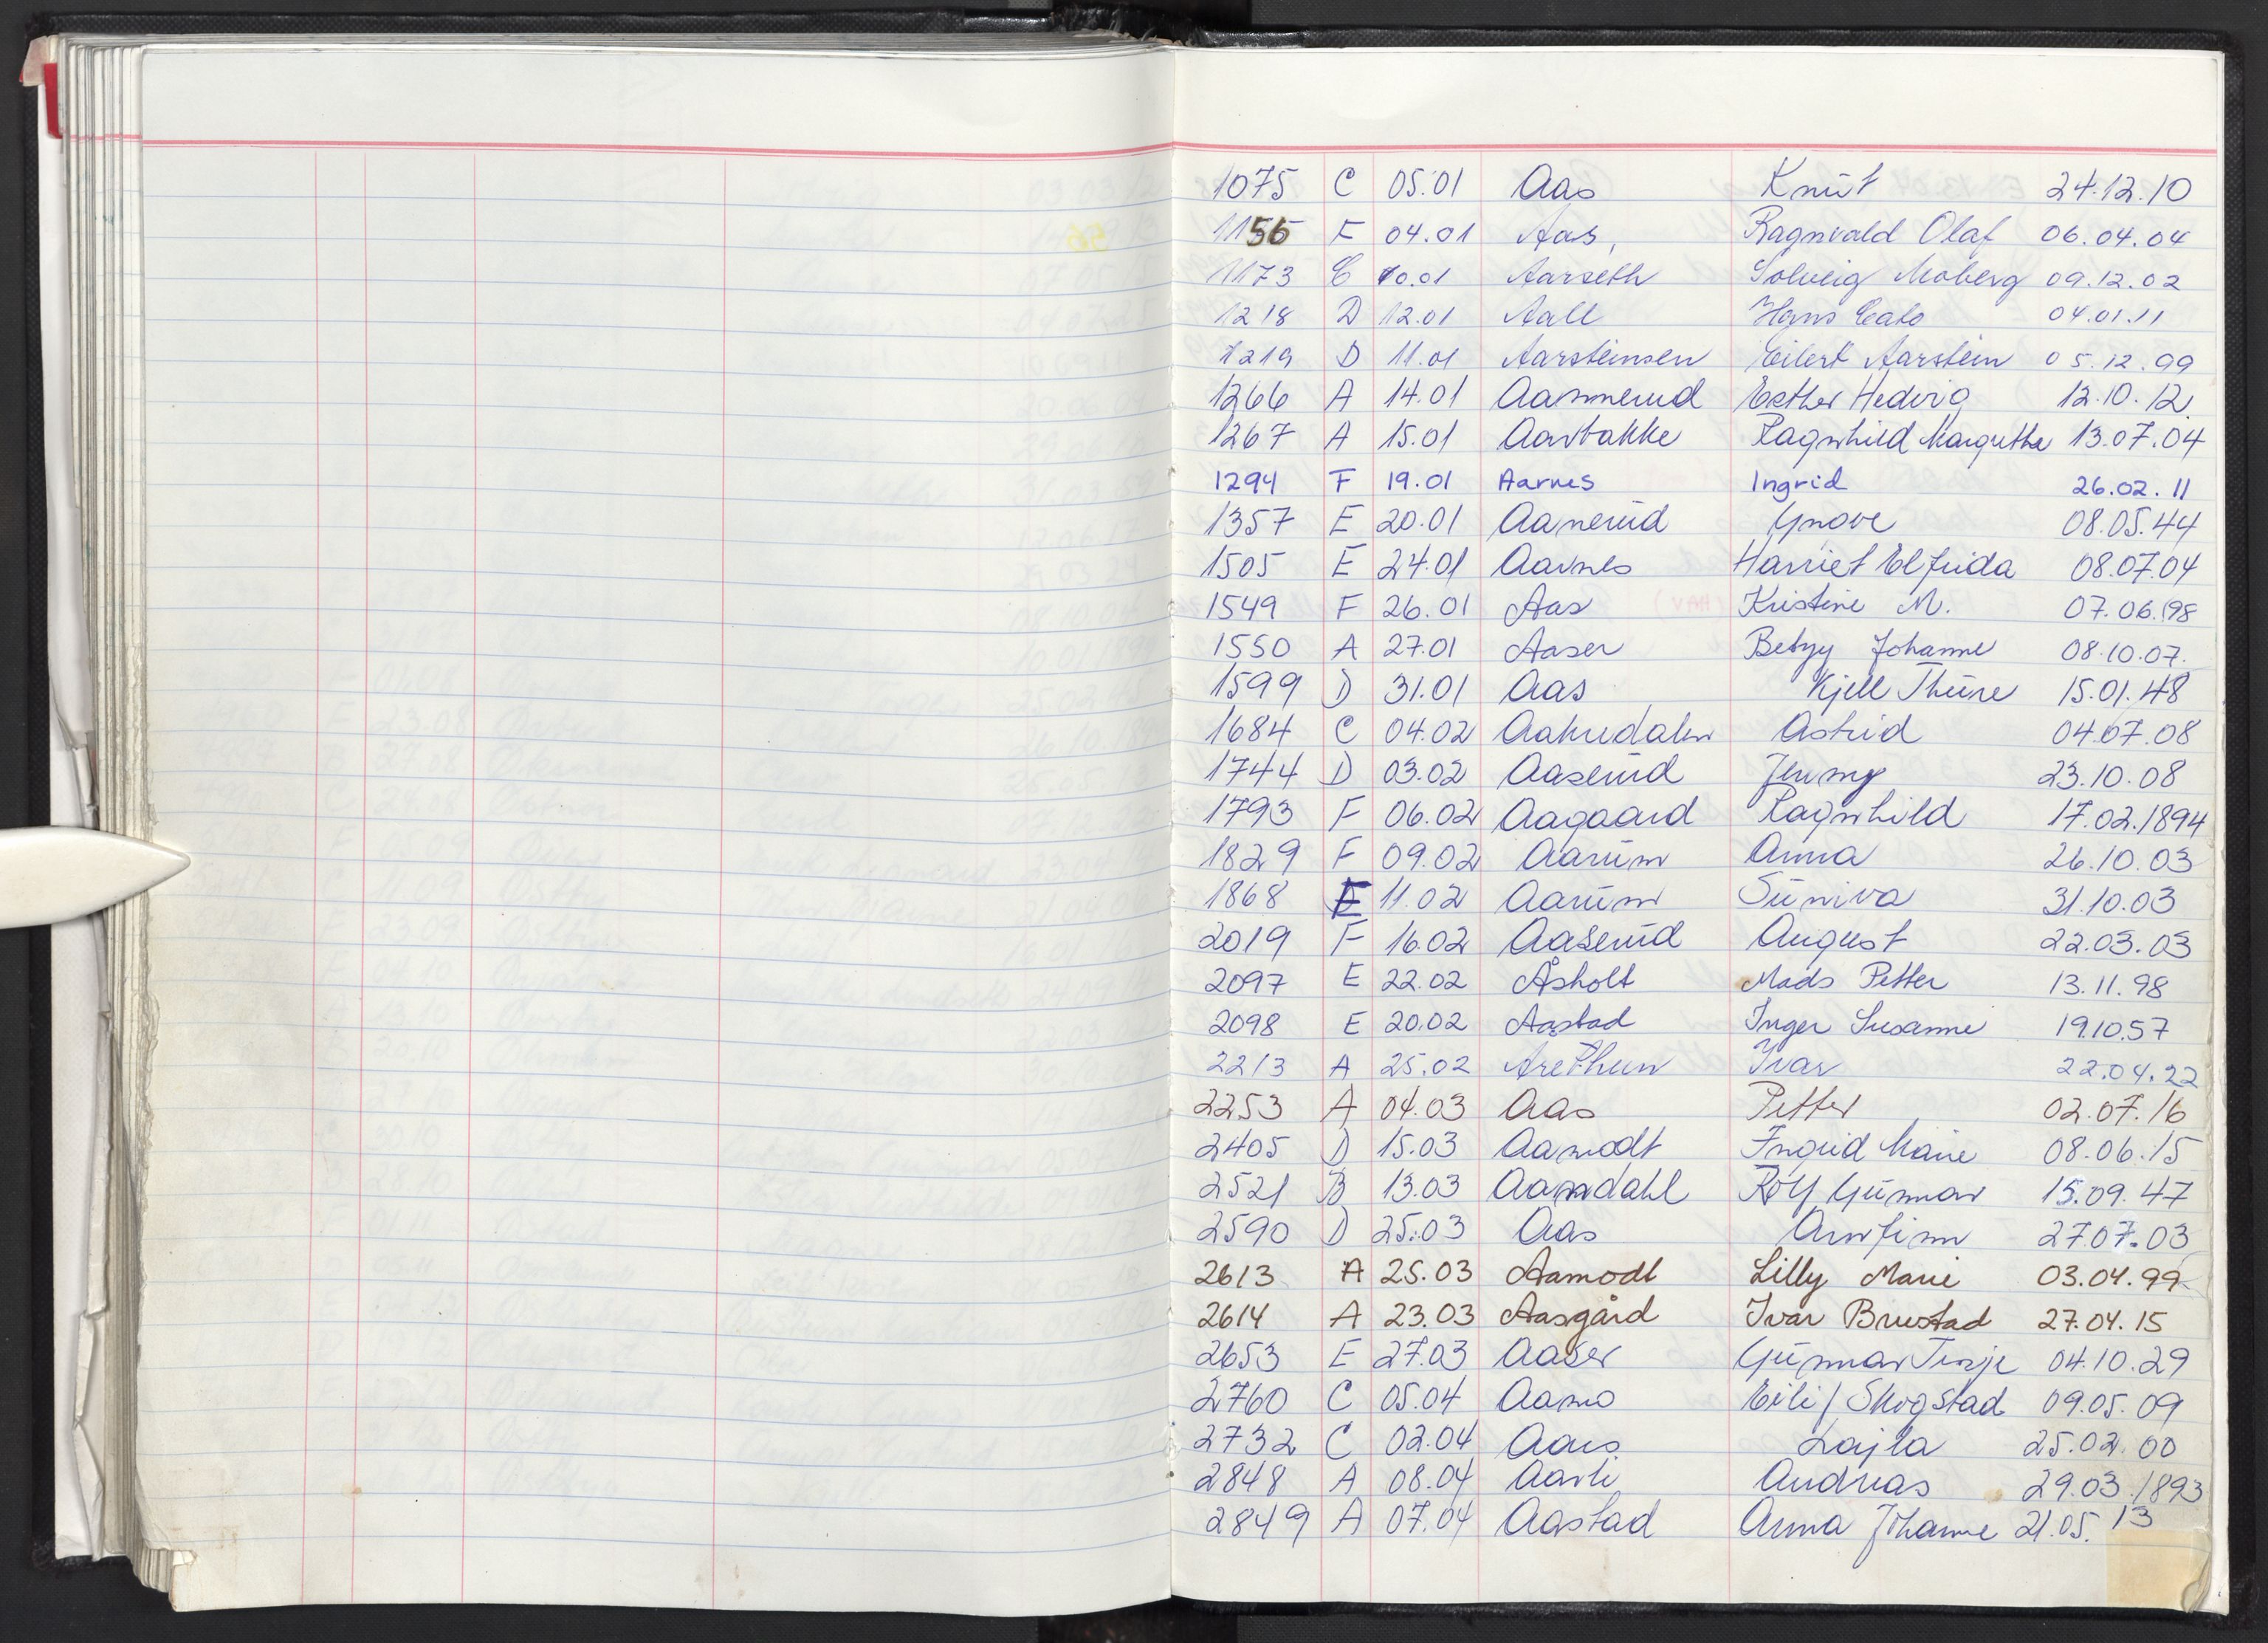 1075 C 05.01 Aas Knut 24.12.10
1156 F 04.01 Aas, Ragnvald Olaf 06.04.04
1173 C 10.01 Aarseth Solveig Moberg 09.12.02
1218 D 12.01 Aall Hans Cato 04.01.11
1219 D 11.01 Aarsteinsen Eilert Aarstein 05.12.99
1266 A 14.01 Aamnerud Esther Hedvig 12.10.12
1267 A 15.01 Aarbakke Ragnhild Margrethe 13.07.04
1294 F 19.01 Aarnes Ingrid 26.02.11
1357 E 20.01 Aanerud Yngve 08.05.44
1505 E 24.01 Aarnes Harriet Elfrida 08.07.04
1549 F 26.01 Aas Kristine M. 07.06.98
1550 A 27.01 Aaser Betzy Johanne 08.10.07.
1599 D 31.01 Aas Kjell Thure 15.01.48
1684 C 04.02 Aakredalen Astrid 04.07.08
1744 D 03.02 Aaserud Jenny 23.10.08
1793 F 06.02 Aagaard Ragnhild 17.02.1894
1829 F 09.02 Aarum Anna 26.10.03
1868 E 11.02 Aarum Suniva 31.10.03
2019 F 16.02 Aaserud August 22.03.03
2097 E 22.02 Åsholt Mads Petter 13.11.98
2098 E 20.02 Aastad Inger Susanne 19.10.57
2213 A 25.02 Arethun Ivar 22.04.22
2253 A 04.03 Aas Petter 02.07.16
2405 D 15.03 Aamodt Ingrid Marie 08.06.15
2521 B 13.03 Aamdahl Rolf Gunnar 15.09.47
2590 D 25.03 Aas Arnfinn 27.07.03
2613 A 25.03 Aamodt Lilly Marie 03.04.99
2614 A 23.03 Aasgård Ivar Brustad 27.04.15
2653 E 27.03 Aaser Gunnar Terje 04.10.29
2760 C 05.04 Aamo Eili / Skogstad 09.05.09
2732 C 02.04 Aars Lajla 25.02.00
2848 A 08.04 Aarli Andreas 29.03.1893
2849 A 07.04 Aastad Anna Johanne 21.05.13